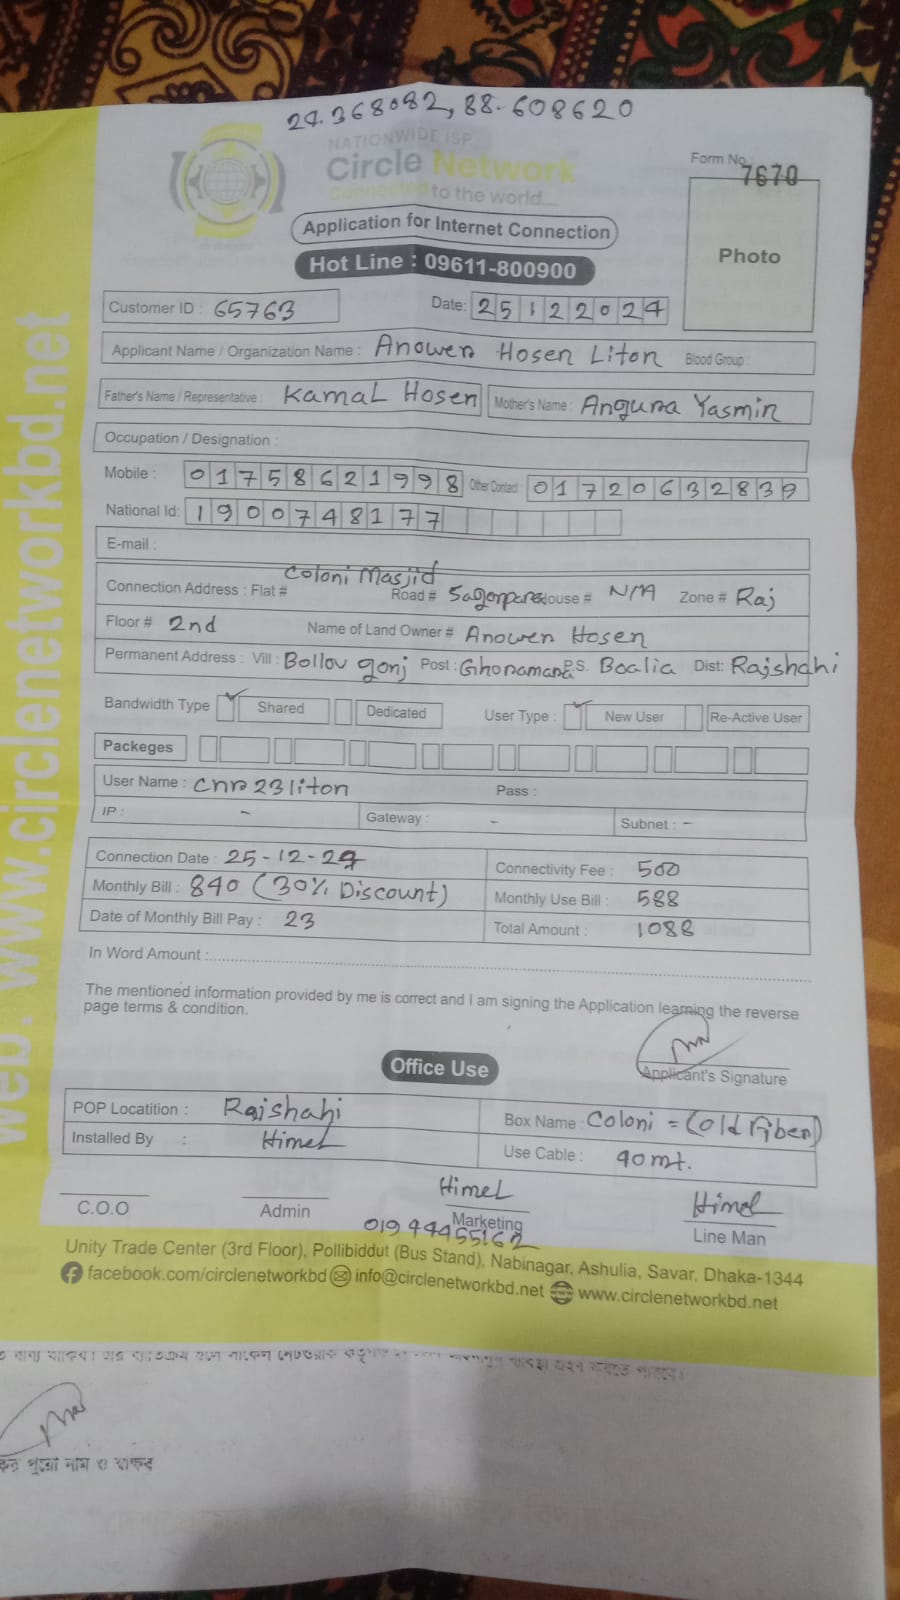 24.368082, 88.608620
NATIONWIDE ISP
Circle Network
Connected to the world...
Form No.: 7670
Application for Internet Connection
Photo
Hot Line : 09611-800900
Customer ID : 65763 Date: 25122024
Applicant Name / Organization Name : Anower Hosen Liton Blood Group :
Father's Name / Representative : Kamal Hosen Mother's Name : Angura Yasmin
Occupation / Designation :
Mobile : 01758621998 Other Contact : 01720632839
National Id: 1900748177
E-mail :
Coloni Masjid
Connection Address : Flat # Road # Sagorpara House # N/A Zone # Raj
Floor # 2nd Name of Land Owner # Anower Hosen
Permanent Address : Vill : Bollov gonj Post : Ghoramara P.S. Boalia Dist: Rajshahi
Bandwidth Type Shared Dedicated User Type : New User Re-Active User
Packeges
User Name : cnr23liton Pass :
IP : - Gateway : - Subnet : -
Connection Date : 25-12-24 Connectivity Fee : 500
Monthly Bill : 840 (30% Discount) Monthly Use Bill : 588
Date of Monthly Bill Pay : 23 Total Amount : 1088
In Word Amount :
The mentioned information provided by me is correct and I am signing the Application learning the reverse
page terms & condition.
Applicant's Signature
Office Use
POP Locatition : Rajshahi Box Name : Coloni = (Old Fiber)
Installed By : Himel Use Cable : 90mt.
Himel Himel
C.O.O Admin Marketing Line Man
01944455162
Unity Trade Center (3rd Floor), Pollibiddut (Bus Stand), Nabinagar, Ashulia, Savar, Dhaka-1344
facebook.com/circlenetworkbd info@circlenetworkbd.net www.circlenetworkbd.net
web: www.circlenetworkbd.net
পুরো নাম ও